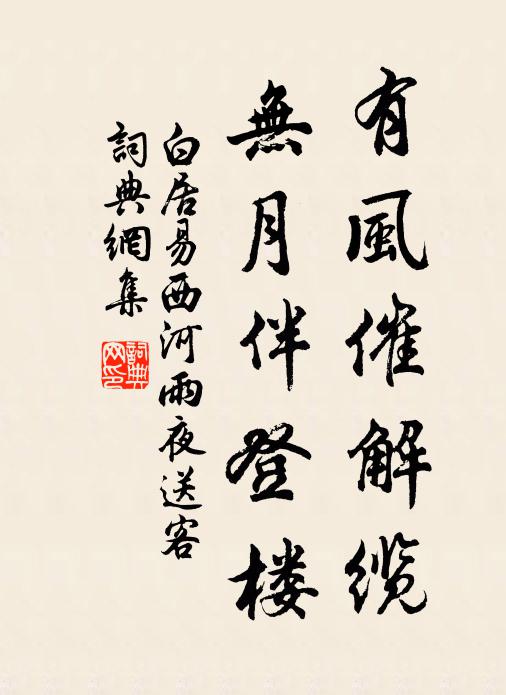 有風催解纜
無月伴登楼
白居易西河雨夜送客
詞典網集
詞典網印